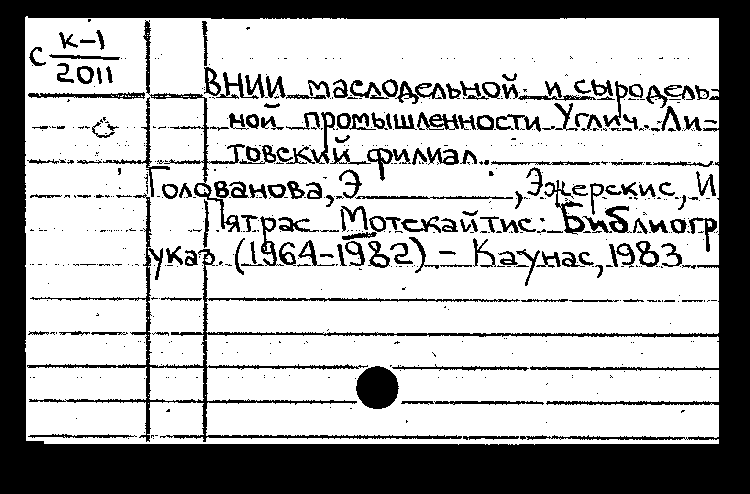 С К-1
2011
ВНИИ маслодельной и сыродель-
ной промышленности. Углич. Ли-
товский филиал.
Голованова, Э , Эжерскис, Й
Пятрас Мотекайтис: Библиогр
указ. (1964-1982) - Каунас, 1983